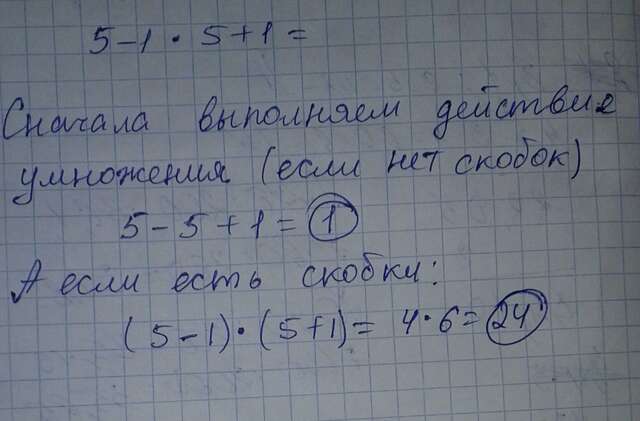 5-1·5+1=
Сначала выполняем действие
умножения (если нет скобок)
5-5+1=1
А если есть скобки:
(5-1)·(5+1)= 4·6=24